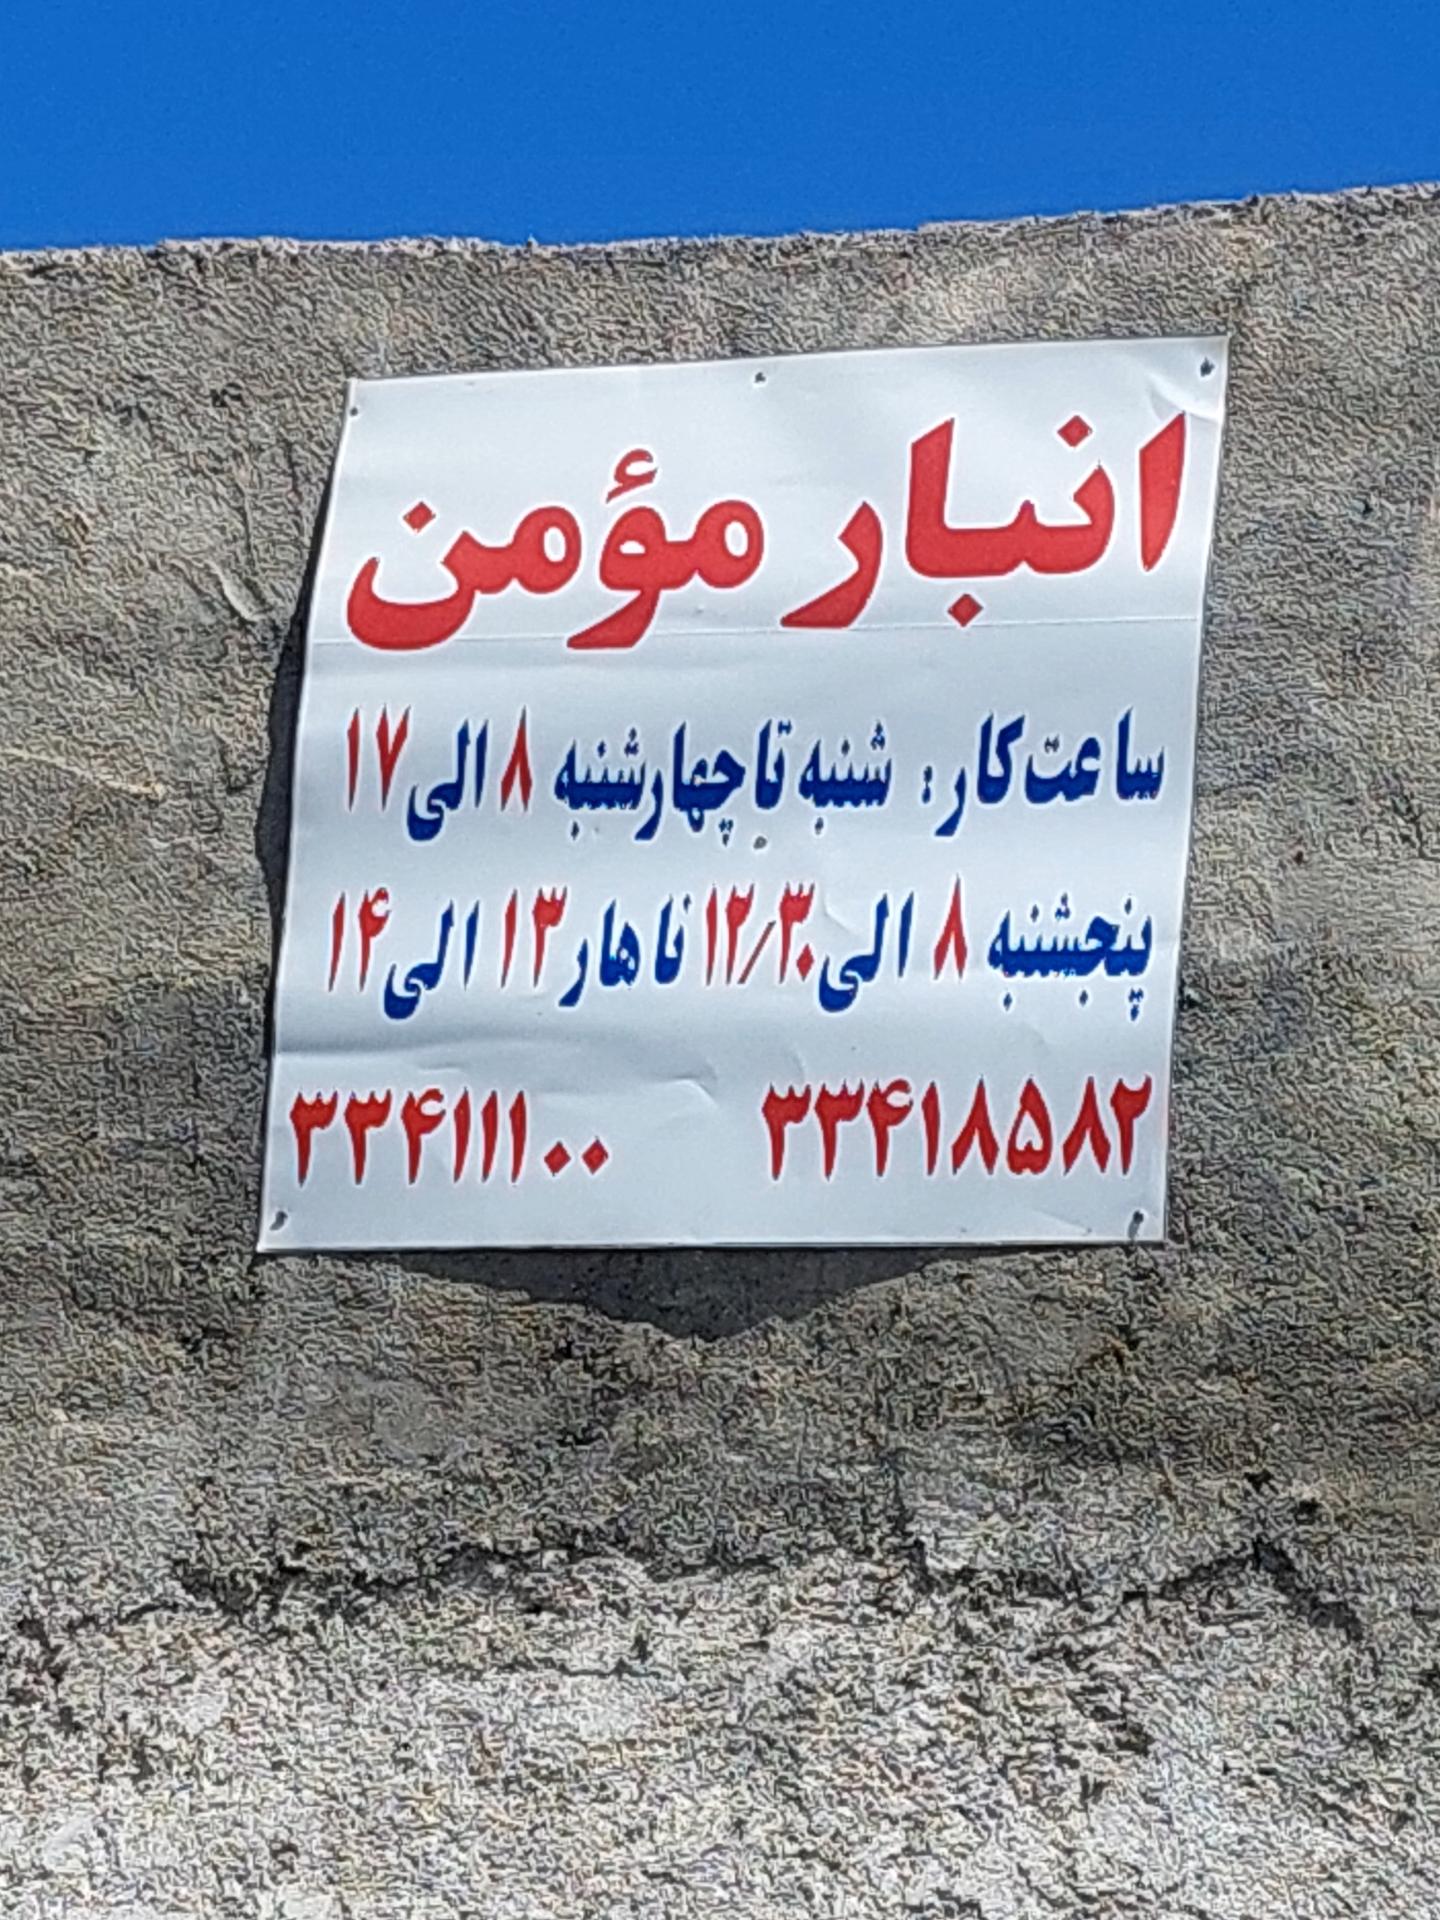 انبار مؤمن
ساعت کار: شنبه تا چهارشنبه ۸ الی ۱۷
پنجشنبه ۸ الی ۱۲/۳۰ ناهار ۱۳ الی ۱۴
۳۳۴۱۱۱۰۰ ۳۳۴۱۸۵۸۲